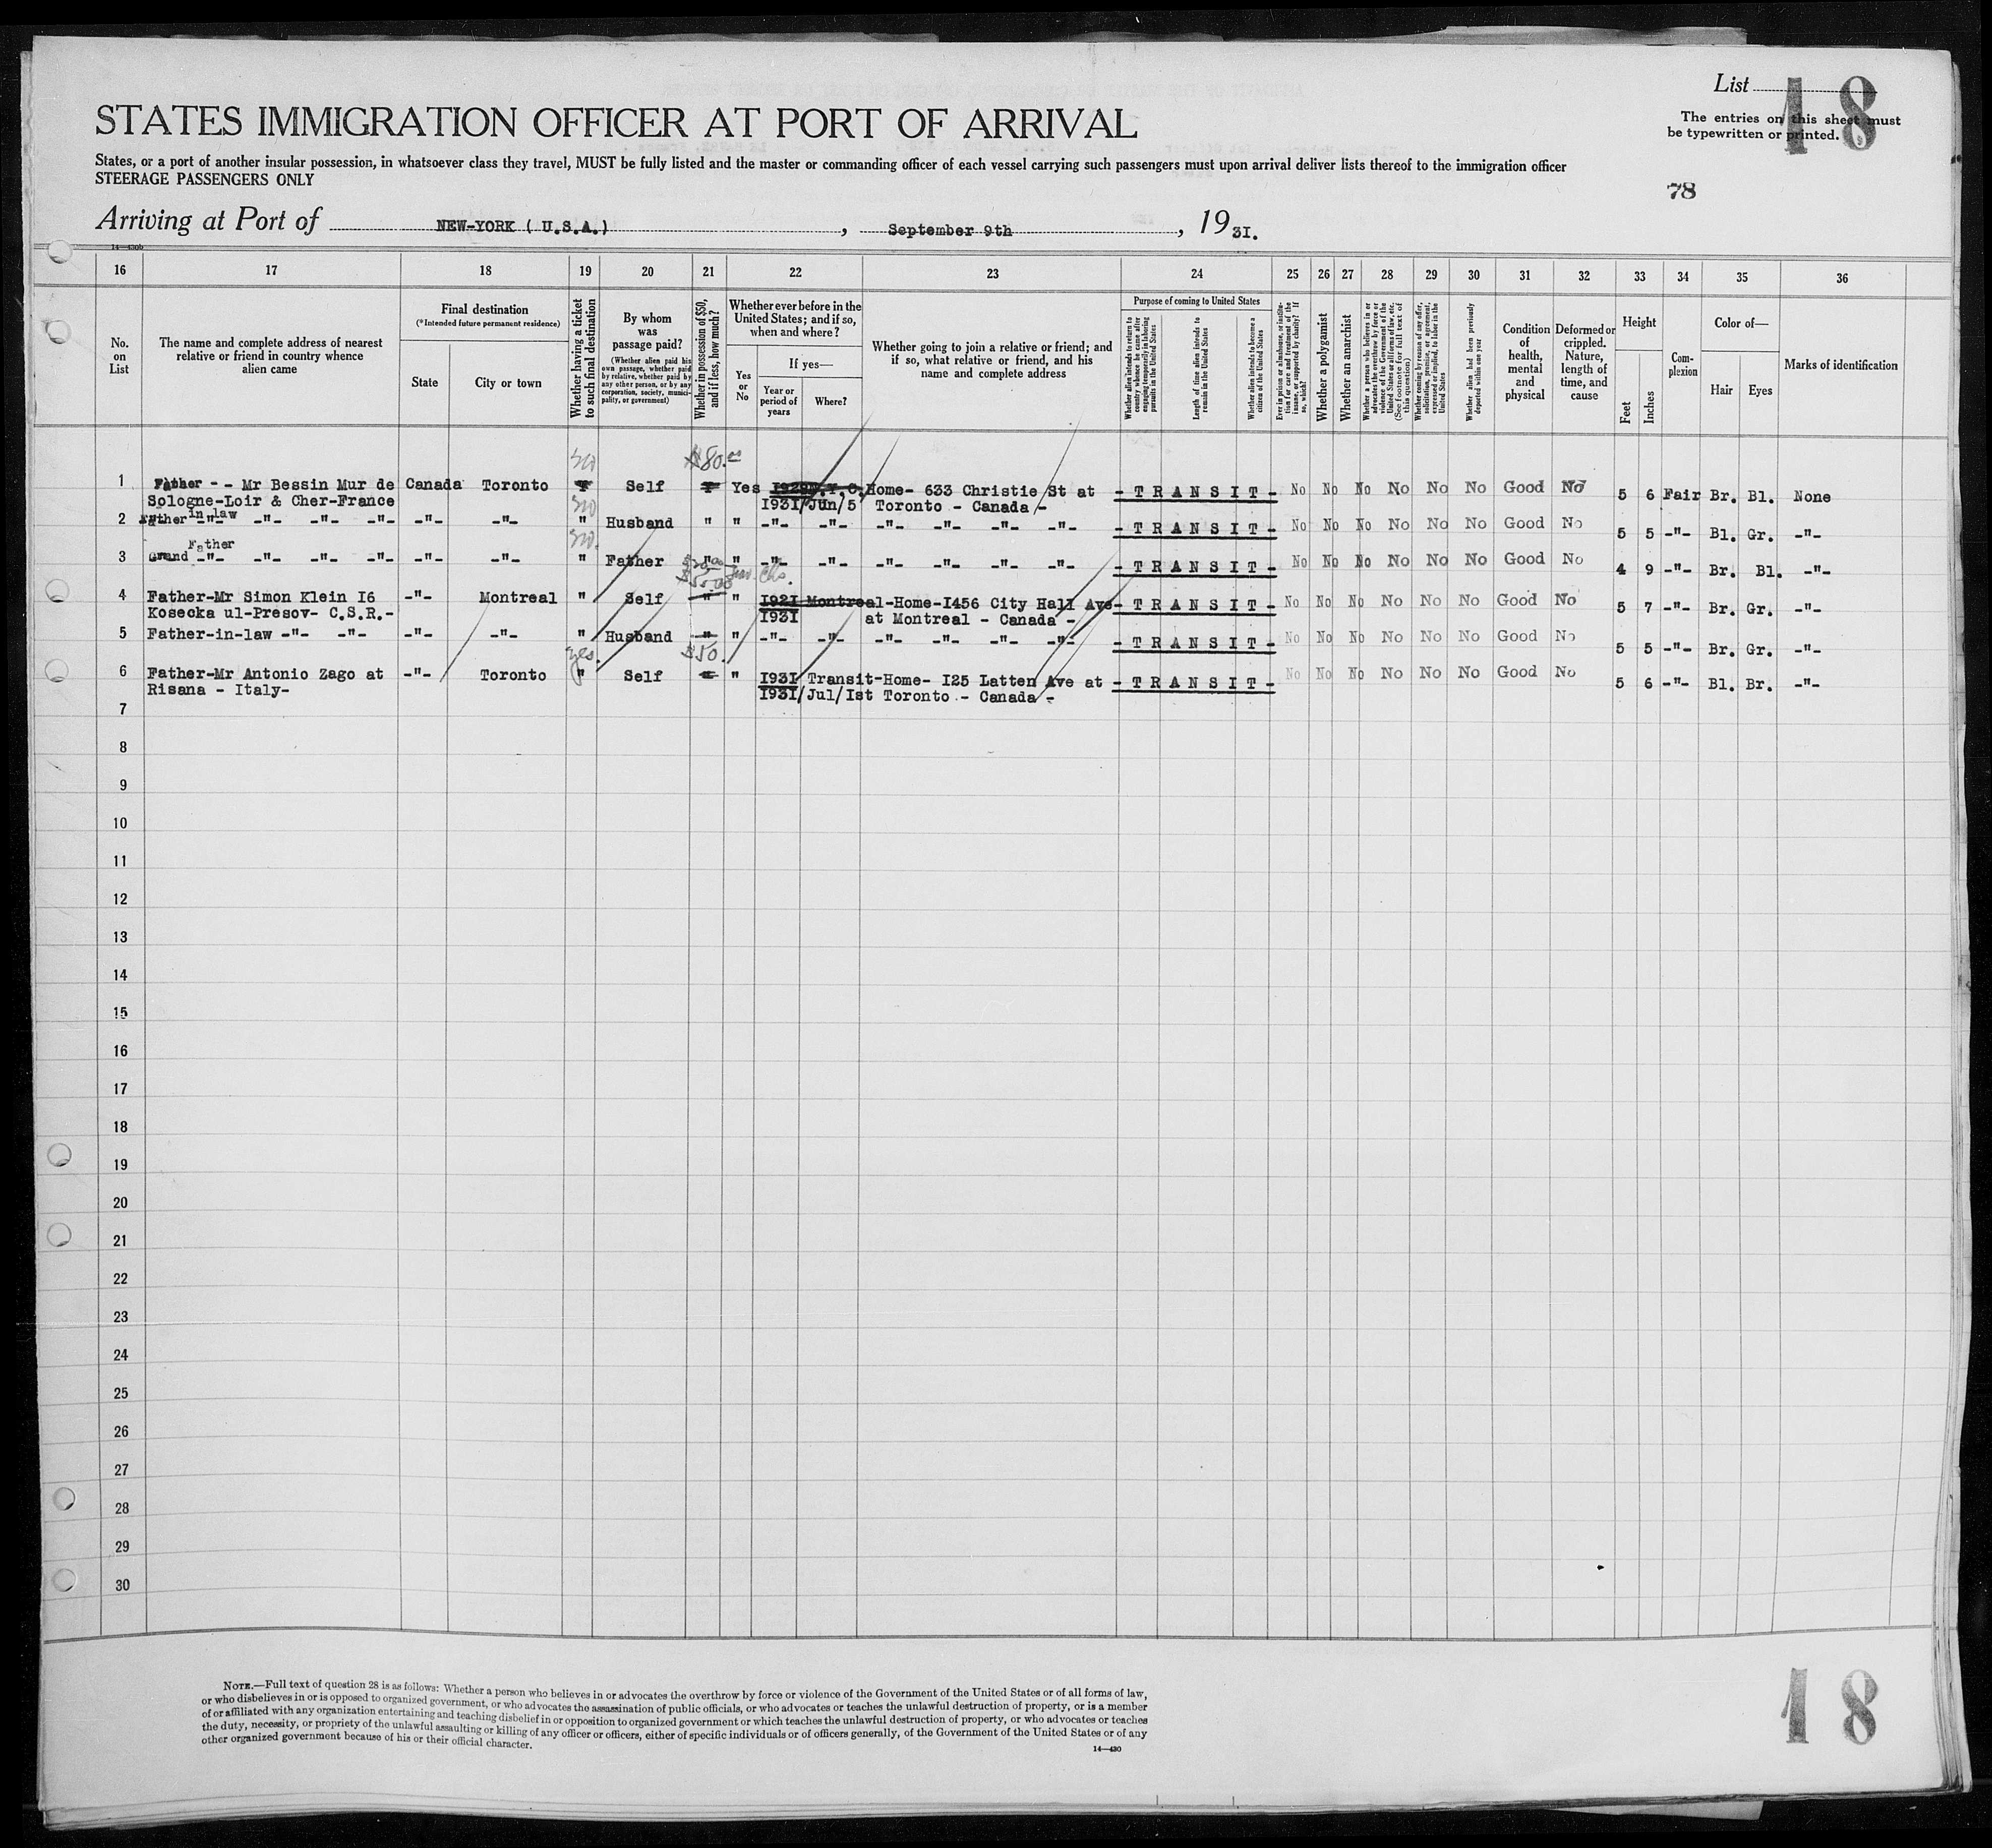 List 18
STATES IMMIGRATION OFFICER AT PORT OF ARRIVAL
The entries on this sheet must
be typewritten or printed.
States, or a port of another insular possession, in whatsoever class they travel, MUST be fully listed and the master or commanding officer of each vessel carrying such passengers must upon arrival deliver lists thereof to the immigration officer
STEERAGE PASSENGERS ONLY
78
Arriving at Port of NEW-YORK (U.S.A.), September 9th, 1931.
14-430b
16 17 18 19 20 21 22 23 24 25 26 27 28 29 30 31 32 33 34 35 36
No. on List
The name and complete address of nearest
relative or friend in country whence
alien came
Final destination
(*Intended future permanent residence)
State
City or town
Whether having a ticket
to such final destination
By whom
was
passage paid?
(Whether alien paid his
own passage, whether paid
by relative, whether paid by
any other person, or by any
corporation, society, munici-
pality, or government)
Whether in possession of $50,
and if less, how much?
Whether ever before in the
United States; and if so,
when and where?
Yes or No
If yes—
Year or
period of
years
Where?
Whether going to join a relative or friend; and
if so, what relative or friend, and his
name and complete address
Purpose of coming to United States
Whether alien intends to return to
country whence he came after
engaging temporarily in laboring
pursuits in the United States
Length of time alien intends to
remain in the United States
Whether alien intends to become a
citizen of the United States
Ever in prison or almshouse, or institu-
tion for care and treatment of the
insane, or supported by charity? If
so, which?
Whether a polygamist
Whether an anarchist
Whether a person who believes in or
advocates the overthrow by force or
violence of the Government of the
United States or all forms of law, etc.
(See footnote for full text of
this question)
Whether coming by reason of any offer,
solicitation, promise, or agreement,
expressed or implied, to labor in the
United States
Whether alien had been previously
deported within one year
Condition
of
health,
mental
and
physical
Deformed or
crippled.
Nature,
length of
time, and
cause
Height
Feet
Inches
Com-
plexion
Color of—
Hair
Eyes
Marks of identification
no $80.00
1 Father - - Mr Bessin Mur de Canada Toronto Self Yes 1929 N.Y.C. Home- 633 Christie St at - T R A N S I T - No No No No No No Good No 5 6 Fair Br. Bl. None
Sologne-Loir & Cher-France 1931/Jun/5 Toronto - Canada -
no
2 Father in law -"- -"- -"- -"- -"- -"- " Husband " " -"- -"- -"- -"- -"- -"- - T R A N S I T - No No No No No No Good No 5 5 -"- Bl. Gr. -"-
no
3 Grand Father -"- -"- -"- -"- -"- -"- " Father " " -"- -"- -"- -"- -"- -"- - T R A N S I T - No No No No No No Good No 4 9 -"- Br. Bl. -"-
4 Father-Mr Simon Klein I6 -"- Montreal " Self " " I92I Montreal-Home-I456 City Hall Ave- T R A N S I T - No No No No No No Good No 5 7 -"- Br. Gr. -"-
Kosecka ul-Presov- C.S.R.- I93I at Montreal - Canada -
5 Father-in-law -"- -"- -"- -"- " Husband " " -"- -"- -"- -"- -"- -"- - T R A N S I T - No No No No No No Good No 5 5 -"- Br. Gr. -"-
yes. $50.
6 Father-Mr Antonio Zago at -"- Toronto " Self " " I93I Transit-Home- I25 Latten Ave at - T R A N S I T - No No No No No No Good No 5 6 -"- Bl. Br. -"-
Risana - Italy- I93I/Jul/Ist Toronto - Canada -
7
8
9
10
11
12
13
14
15
16
17
18
19
20
21
22
23
24
25
26
27
28
29
30
NOTE.—Full text of question 28 is as follows: Whether a person who believes in or advocates the overthrow by force or violence of the Government of the United States or of all forms of law,
or who disbelieves in or is opposed to organized government, or who advocates the assassination of public officials, or who advocates or teaches the unlawful destruction of property, or is a member
of or affiliated with any organization entertaining and teaching disbelief in or opposition to organized government or which teaches the unlawful destruction of property, or who advocates or teaches
the duty, necessity, or propriety of the unlawful assaulting or killing of any officer or officers, either of specific individuals or of officers generally, of the Government of the United States or of any
other organized government because of his or their official character.
14-430
18